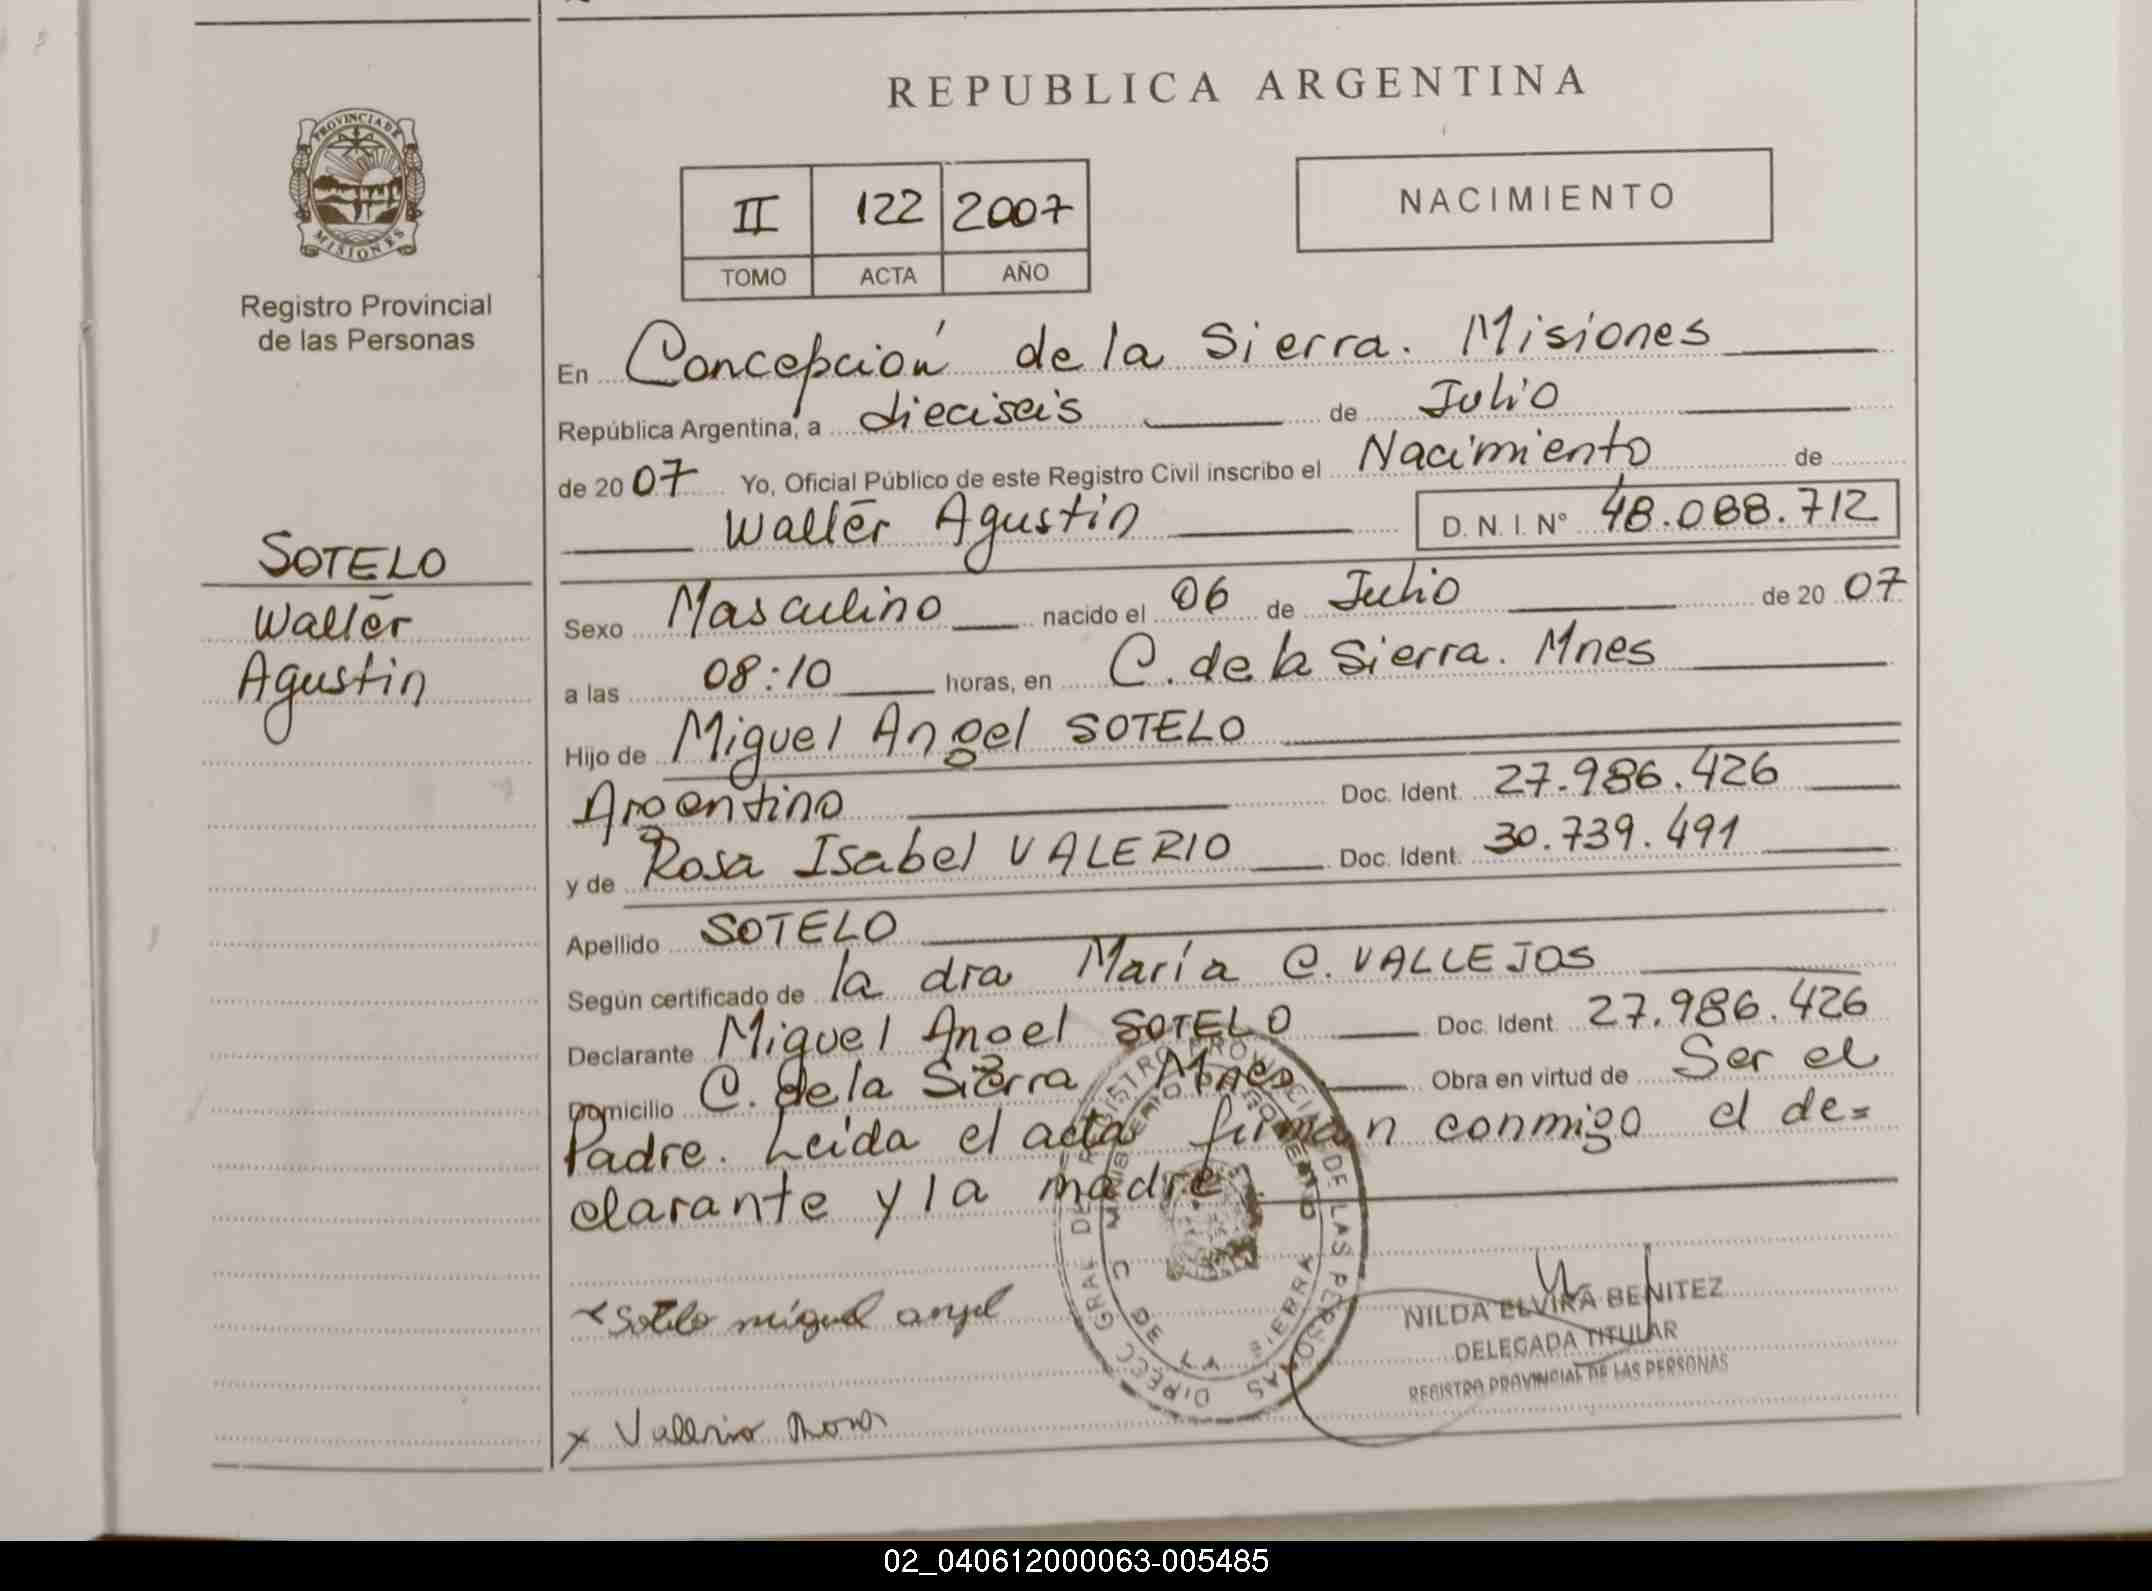 REPUBLICA ARGENTINA
PROVINCIA DE
MISIONES
Registro Provincial
de las Personas
II 122 2007
TOMO ACTA AÑO
NACIMIENTO
En Concepción de la Sierra. Misiones
República Argentina, a dieciseis de Julio
de 2007 Yo, Oficial Público de este Registro Civil inscribo el Nacimiento de
Walter Agustin D. N. I. N° 48.088.712
SOTELO
Walter
Agustin
Sexo Masculino nacido el 06 de Julio de 2007
a las 08:10 horas, en C. de la Sierra. Mnes
Hijo de Miguel Angel SOTELO
Argentino Doc. Ident. 27.986.426
y de Rosa Isabel VALERIO Doc. Ident. 30.739.491
Apellido SOTELO
Según certificado de la dra María C. VALLEJOS
Declarante Miguel Angel SOTELO Doc. Ident. 27.986.426
Domicilio C. de la Sierra Mnes Obra en virtud de Ser el
Padre. Leida el acta firman conmigo el de=
clarante y la madre.
Sotelo miguel angel
x Vallerio Rosa
DIRECC GRAL DE REGISTRO PROVINCIAL DE LAS PERSONAS
MINISTERIO DE GOBIERNO
C DE LA SIERRA
NILDA ELVIRA BENITEZ
DELEGADA TITULAR
REGISTRO PROVINCIAL DE LAS PERSONAS
02_040612000063-005485